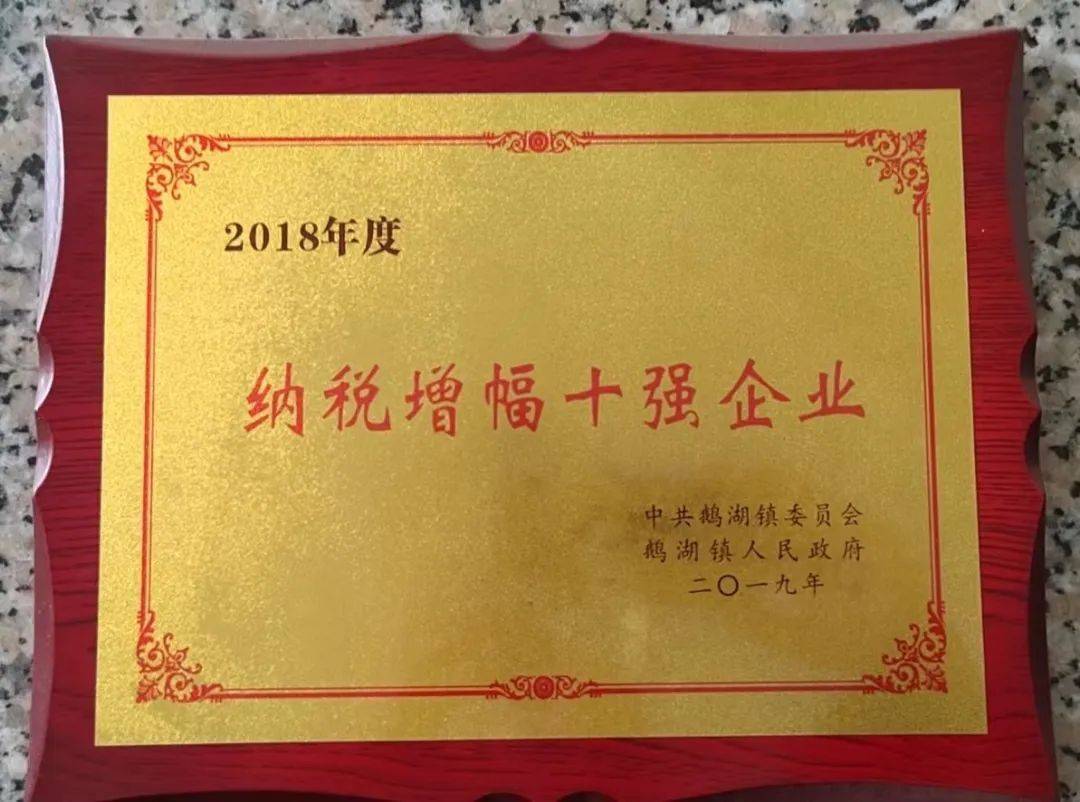 2018年度
纳税增幅十强企业
中共鹅湖镇委员会
鹅湖镇人民政府
二〇一九年